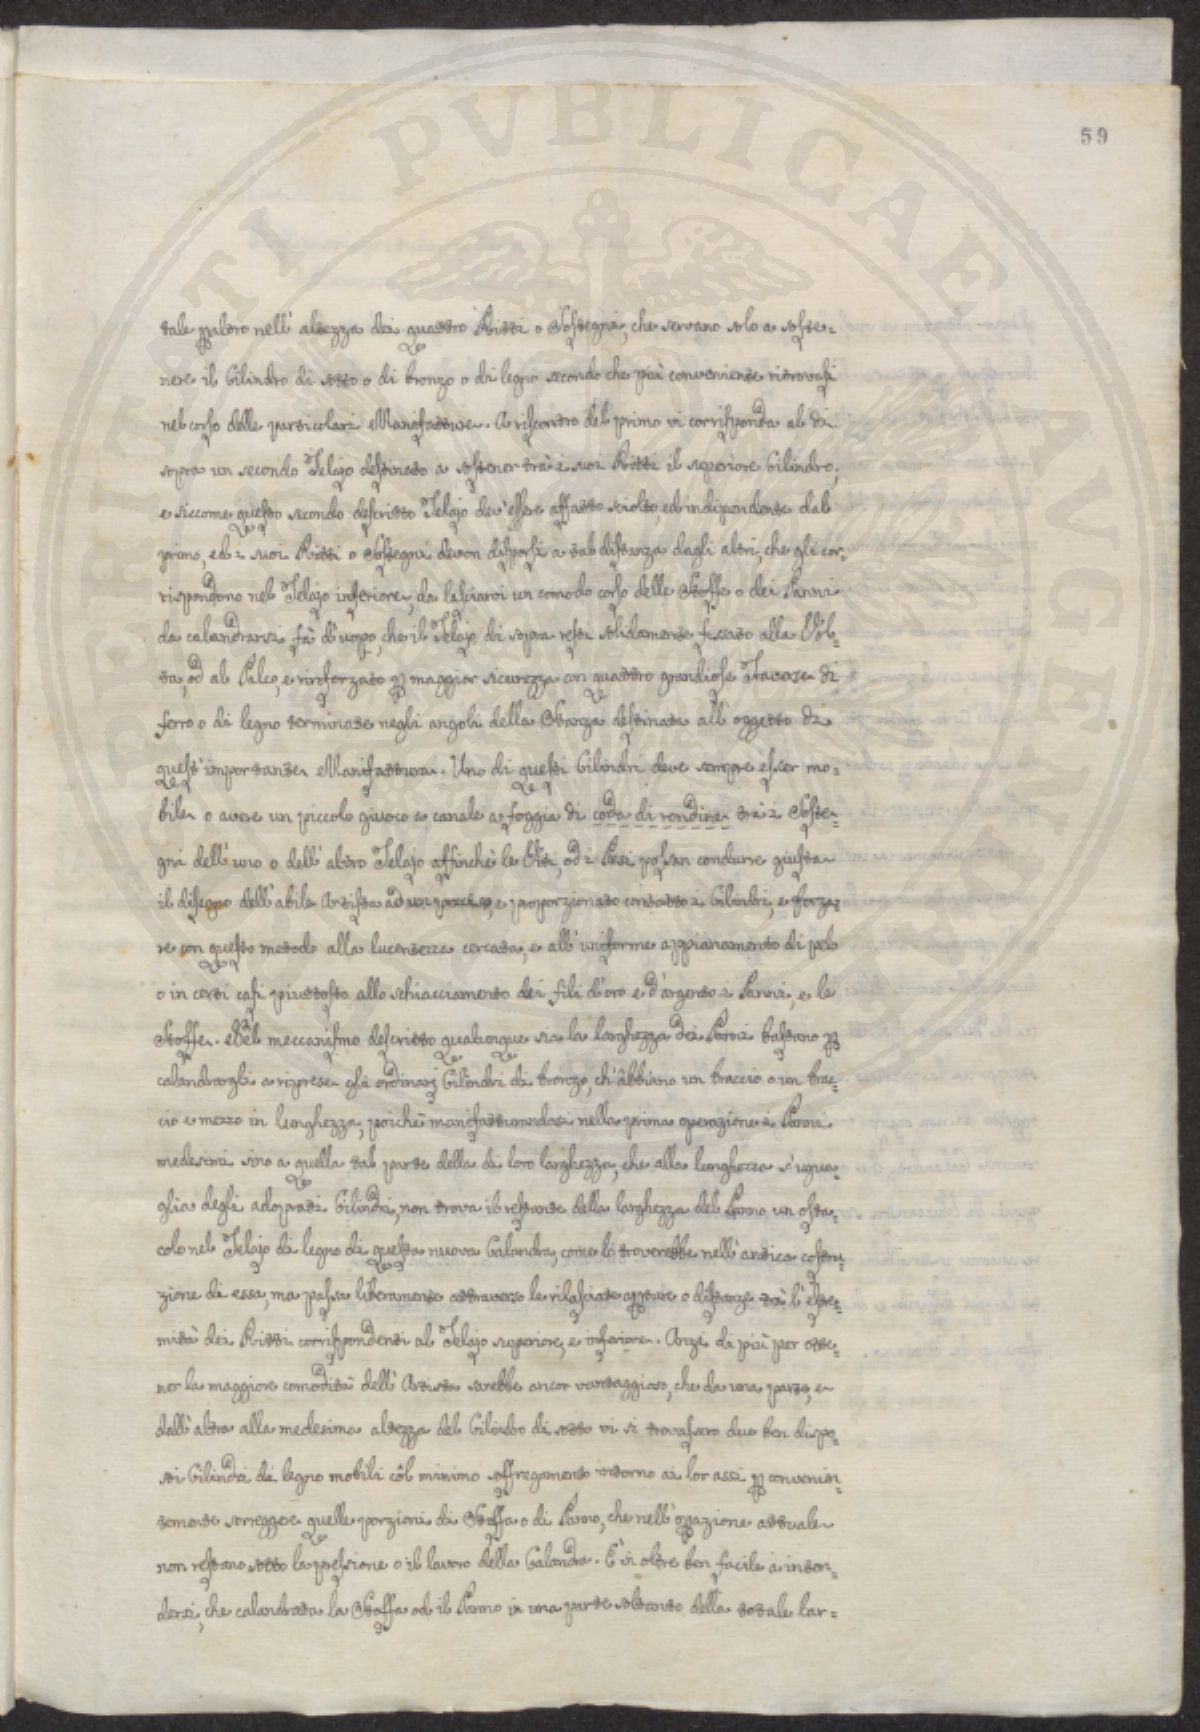 59
tale p altro nell' altezza dei quattro Ritti o Sostegni, che servano solo a soste-
nere il Cilindro di sotto o di bronzo o di legno secondo che più conveniente ritrovasi
nel corso delle particolari Manifatture. A riscontro del primo vi corrisponda al di
sopra un secondo Telajo destinato a sostener trà i suoi Ritti il superiore Cilindro,
e siccome questo secondo descritto Telajo dev' essere affatto sciolto, ed indipendente dal
primo, ed i suoi Ritti o Sostegni devon disporsi a tal distanza dagli altri, che gli cor-
rispondono nel Telajo inferiore, da lasciarvi un comodo corso delle Stoffe o dei Panni
da calandrarsi, fà d' uopo, che il Telajo di sopra resti solidamente fissato alla Vol-
ta, od al Palco, e rinforzato p maggior sicurezza con quattro grandiose Traverse di
ferro o di legno terminate negli angoli della Stanza destinata all' oggetto di
quest' importante Manifattura. Uno di questi Cilindri deve sempre esser mo-
bile o avere un piccolo giuoco e canale a foggia di coda di rondine trà i Soste-
gni dell' uno o dell' altro Telajo affinchè le Viti, od i Pesi possan condurre giusta
il disegno dell' abile Artista ad un preciso, e proporzionato contatto i Cilindri, e forza-
re con questo metodo alla lucentezza cercata, e all' uniforme appianamento di pelo
o in certi casi piuttosto allo schiacciamento dei fili d'oro e d'argento i Panni, e le
Stoffe. Nel meccanismo descritto qualunque sia la larghezza dei Panni bastano p
calandrargli a riprese gli ordinarj Cilindri di bronzo, ch' abbiano un braccio o un brac-
cio e mezzo in lunghezza, poichè manifatturandosi nella prima operazione i Panni
medesimi sino a quella tal parte della di loro larghezza, che alla lunghezza s' ugua-
glia degli adoprati Cilindri, non trova il restante della larghezza del Panno un osta-
colo nel Telajo di legno di questa nuova Calandra, come lo troverebbe nell' antica costru-
zione di essa, ma passa liberamente attraverso le rilasciate apture o distanze trà l' estre-
mità dei Ritti corrispondenti al Telajo superiore, e inferiore. Anzi di più per otte-
ner la maggiore comodità dell' Artista sarebbe ancor vantaggioso, che da una parte, e
dall' altra alla medesima altezza del Cilindro di sotto vi si trovassero due ben dispo-
sti Cilindri di legno mobili còl minimo soffregamento intorno ai lor assi p convenien-
temente sorreggere quelle porzioni di Stoffa o di Panno, che nell' opazione attuale
non restano sotto la pressione o il lavoro della Calandra. E' in oltre ben facile a inten-
dersi, che calandrata la Stoffa od il Panno in una parte soltanto della totale lar-